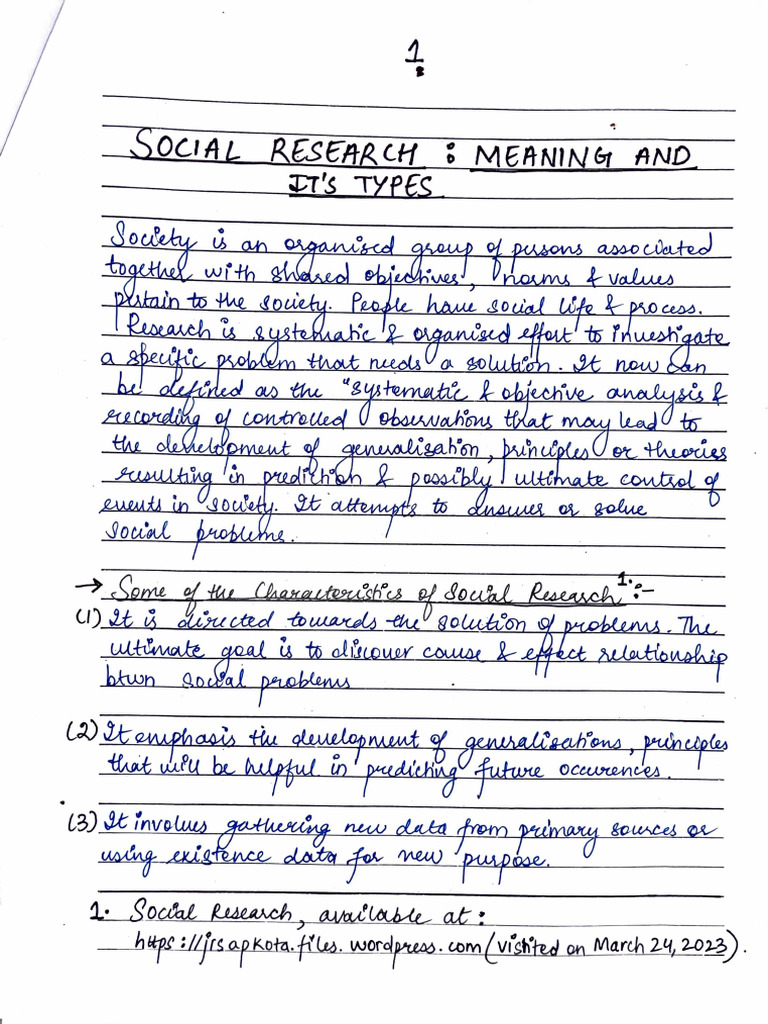 1
SOCIAL RESEARCH : MEANING AND
IT'S TYPES
Society is an organised group of persons associated
together with shared objectives, norms & values
pertain to the society. People have social life & process.
Research is systematic & organised effort to investigate
a specific problem that needs a solution. It now can
be defined as the "systematic & objective analysis &
recording of controlled observations that may lead to
the development of generalisation, principles or theories
resulting in prediction & possibly ultimate control of
events in society. It attempts to answer or solve
social problems.
→ Some of the Characteristics of Social Research 1. :-
(1) It is directed towards the solution of problems. The
ultimate goal is to discover cause & effect relationship
btwn social problems
(2) It emphasis the development of generalisations, principles
that will be helpful in predicting future occurences.
(3) It involves gathering new data from primary sources or
using existence data for new purpose.
1. Social Research, available at :
https://jrsapkota.files.wordpress.com (visited on March 24, 2023).